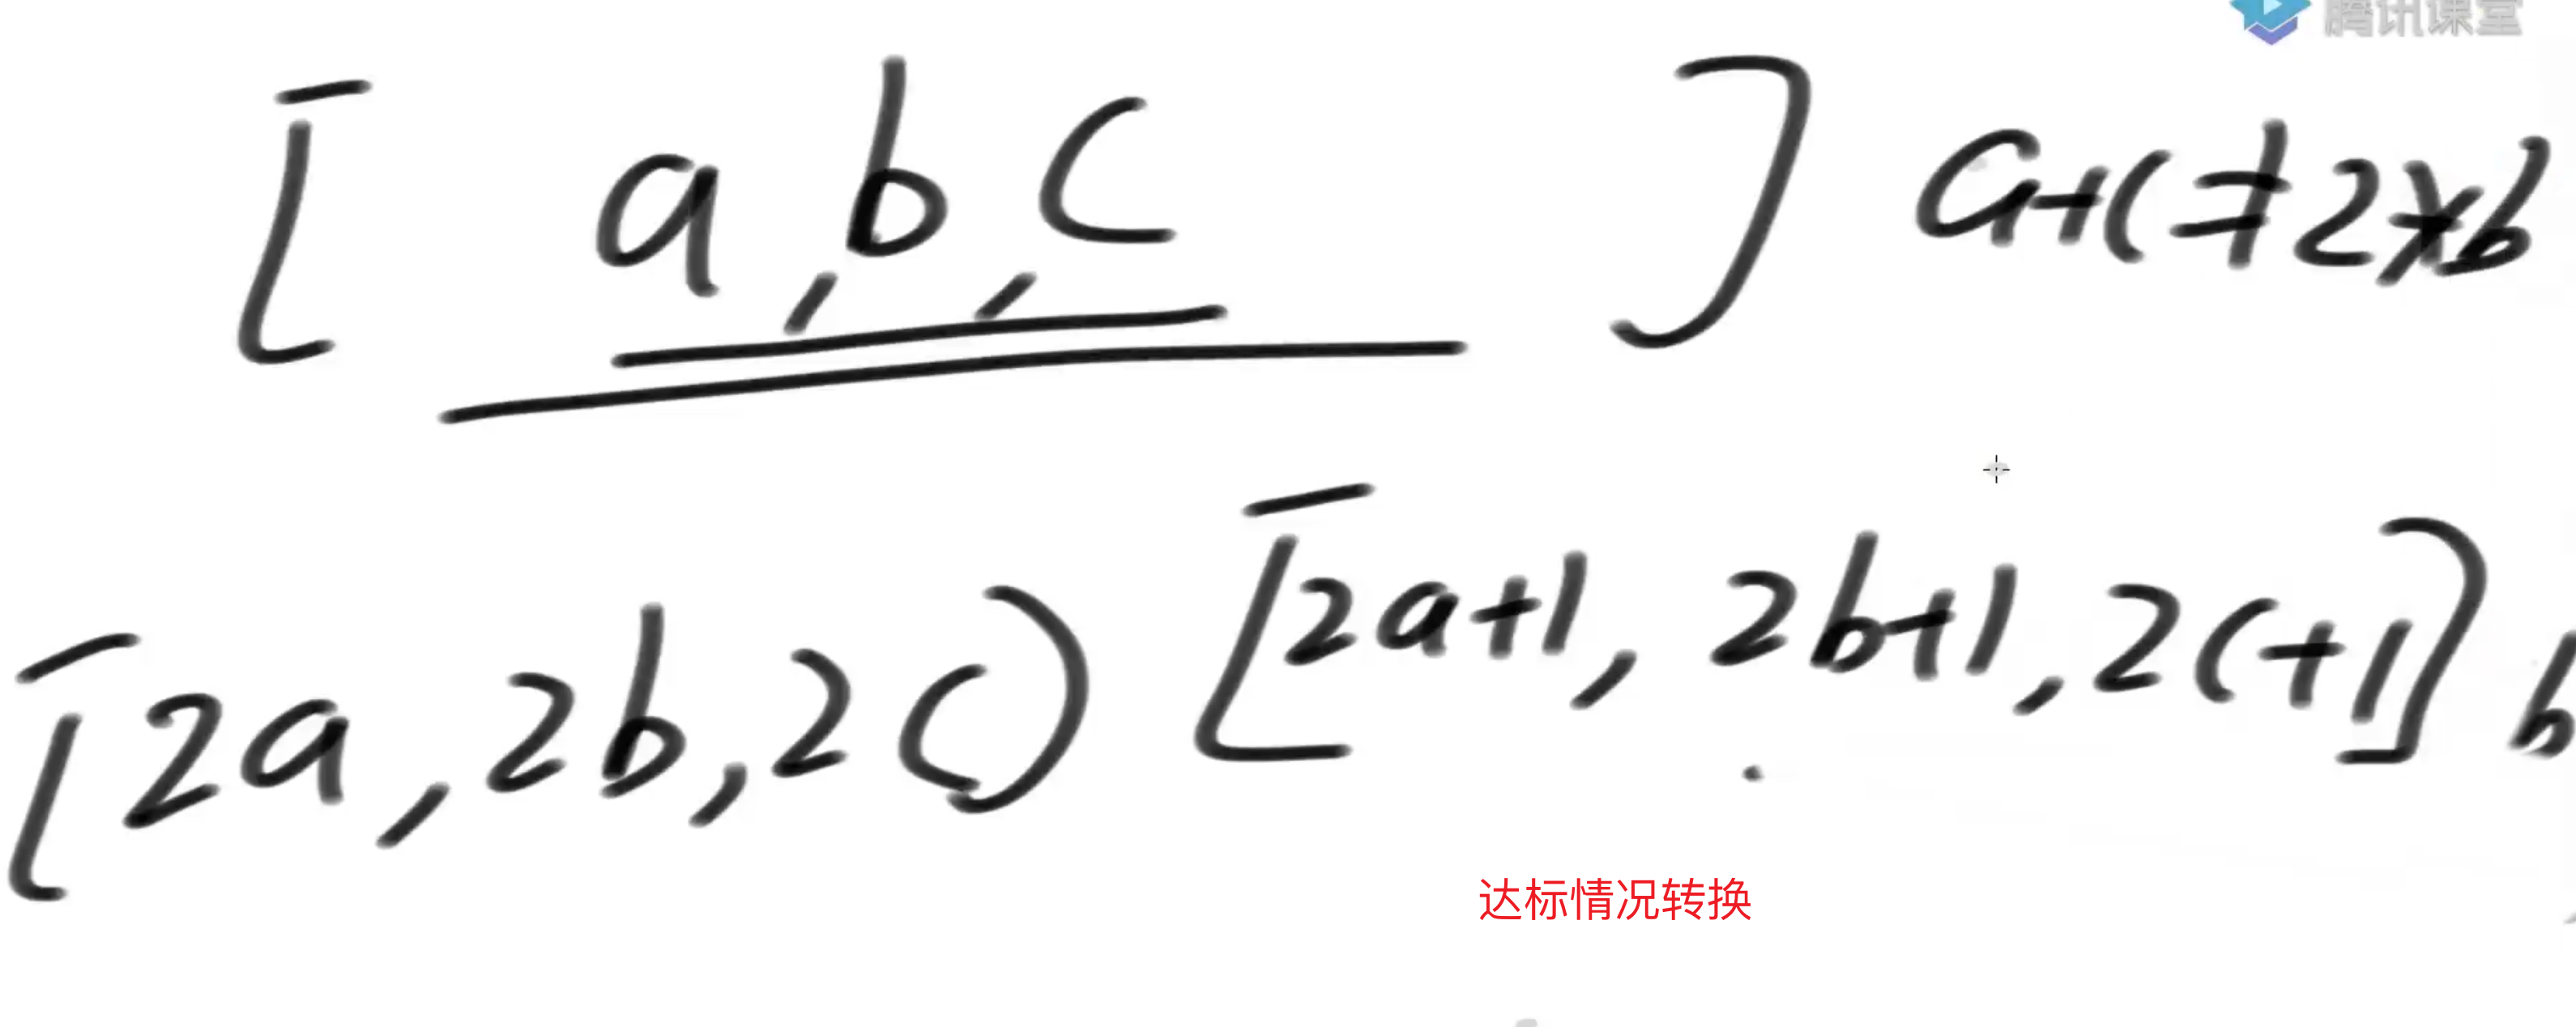 腾讯课堂
[ a, b, c ] a+c≠2*b
[2a, 2b, 2c) [2a+1, 2b+1, 2c+1] b
达标情况转换